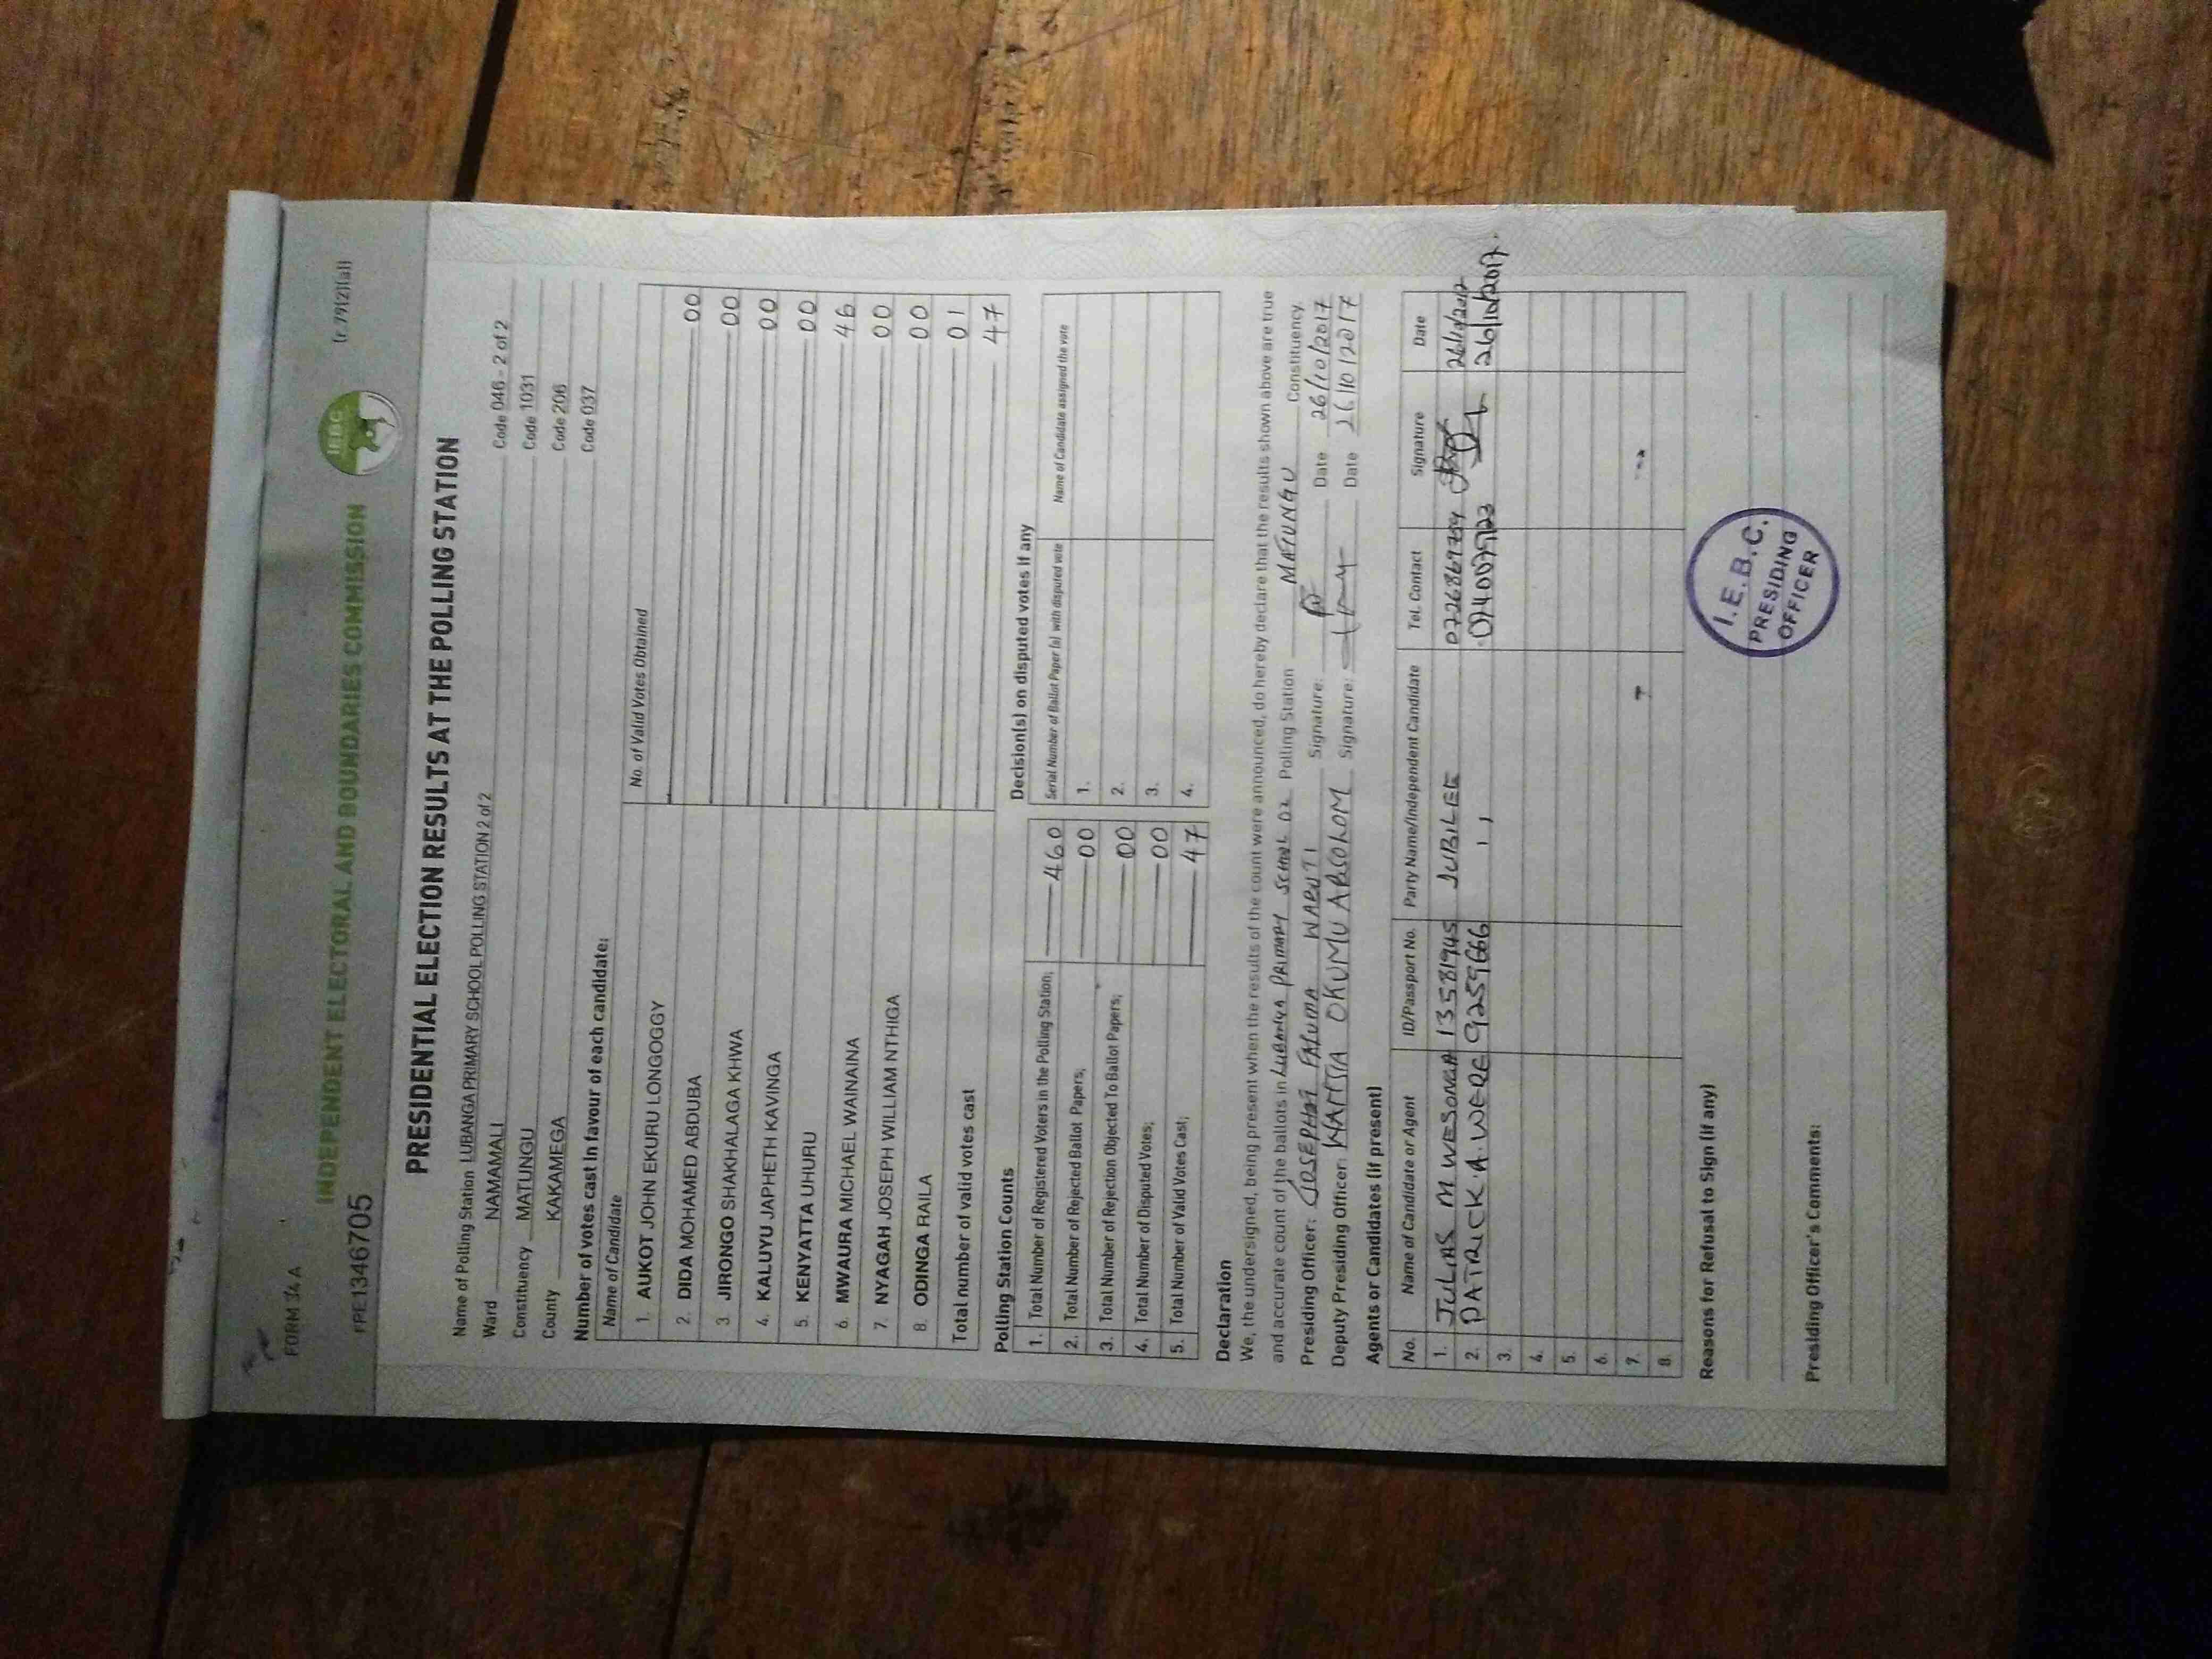 FORM 34 A
INDEPENDENT ELECTORAL AND BOUNDARIES COMMISSION
IEBC
(r.79(2)(a))
PPE1346705
PRESIDENTIAL ELECTION RESULTS AT THE POLLING STATION
Name of Polling Station LUBANGA PRIMARY SCHOOL POLLING STATION 2 of 2 Code 046 - 2 of 2
Ward NAMAMALI Code 1031
Constituency MATUNGU Code 206
County KAKAMEGA Code 037
Number of votes cast in favour of each candidate:
Name of Candidate No. of Valid Votes Obtained
1. AUKOT JOHN EKURU LONGOGGY 00
2. DIDA MOHAMED ABDUBA 00
3. JIRONGO SHAKHALAGA KHWA 00
4. KALUYU JAPHETH KAVINGA 00
5. KENYATTA UHURU 46
6. MWAURA MICHAEL WAINAINA 00
7. NYAGAH JOSEPH WILLIAM NTHIGA 00
8. ODINGA RAILA 01
Total number of valid votes cast 47
Polling Station Counts
1. Total Number of Registered Voters in the Polling Station; 460
2. Total Number of Rejected Ballot Papers; 00
3. Total Number of Rejection Objected To Ballot Papers; 00
4. Total Number of Disputed Votes; 00
5. Total Number of Valid Votes Cast; 47
Decision(s) on disputed votes if any
Serial Number of Ballot Paper (s) with disputed vote Name of Candidate assigned the vote
1.
2.
3.
4.
Declaration
We, the undersigned, being present when the results of the count were announced, do hereby declare that the results shown above are true
and accurate count of the ballots in LUBANGA PRIMARY SCHOOL 02 Polling Station MATUNGU Constituency.
Presiding Officer: JOSEPHAT PALUMA WABUTI Signature: Date 26/10/2017
Deputy Presiding Officer: WAMSIA OKUMU ABSOLOM Signature: Date 26/10/2017
Agents or Candidates (if present)
No. Name of Candidate or Agent ID/Passport No. Party Name/Independent Candidate Tel. Contact Signature Date
1. JULIAS M WESONGA 13581945 JUBILEE 0726869709 26/10/2017
2. PATRICK.A.WERE 9259666 ,, 26/10/2017.
3.
4.
5.
6.
7.
8.
Reasons for Refusal to Sign (if any)
I.E.B.C.
PRESIDING
OFFICER
Presiding Officer's Comments: